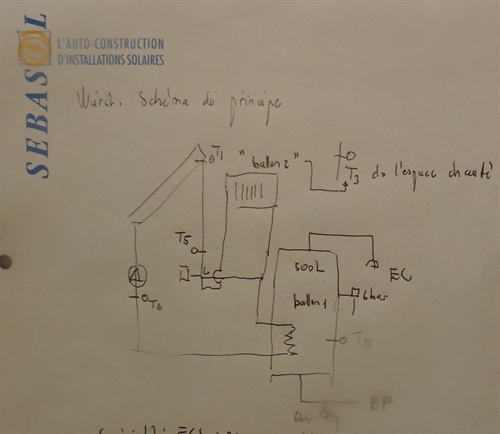 SEBASOL
L'AUTO-CONSTRUCTION
D'INSTALLATIONS SOLAIRES
Schéma de principe
T1
"ballon 2"
T3 de l'espace chauffé
T5
500L
EC
ballon 1
6 bar
T6
T21
EF